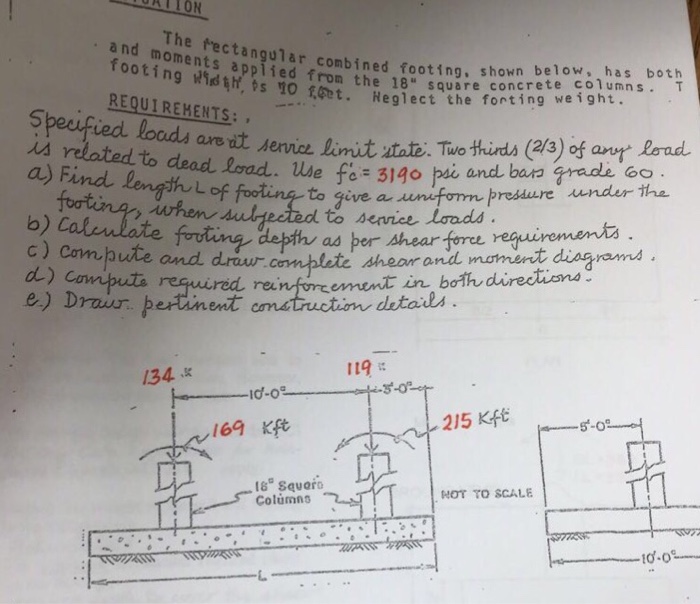 The rectangular combined footing, shown below, has both
and moments applied from the 18" square concrete columns. T
footing width, is 10 feet. Neglect the footing weight.
REQUIREMENTS:
Specified loads are at service limit state. Two thirds (2/3) of any load
is related to dead load. Use f'c = 3190 psi and bars grade 60.
a) Find length L of footing to give a uniform pressure under the
footing, when subjected to service loads.
b) Calculate footing depth as per shear force requirements.
c) Compute and draw complete shear and moment diagrams.
d) Compute required reinforcement in both directions.
e.) Draw pertinent construction details.
134 K 119 K
10'-0" 3'-0"
169 Kft 215 Kft 5'-0"
18" Square
Columns
NOT TO SCALE
10'-0"
L